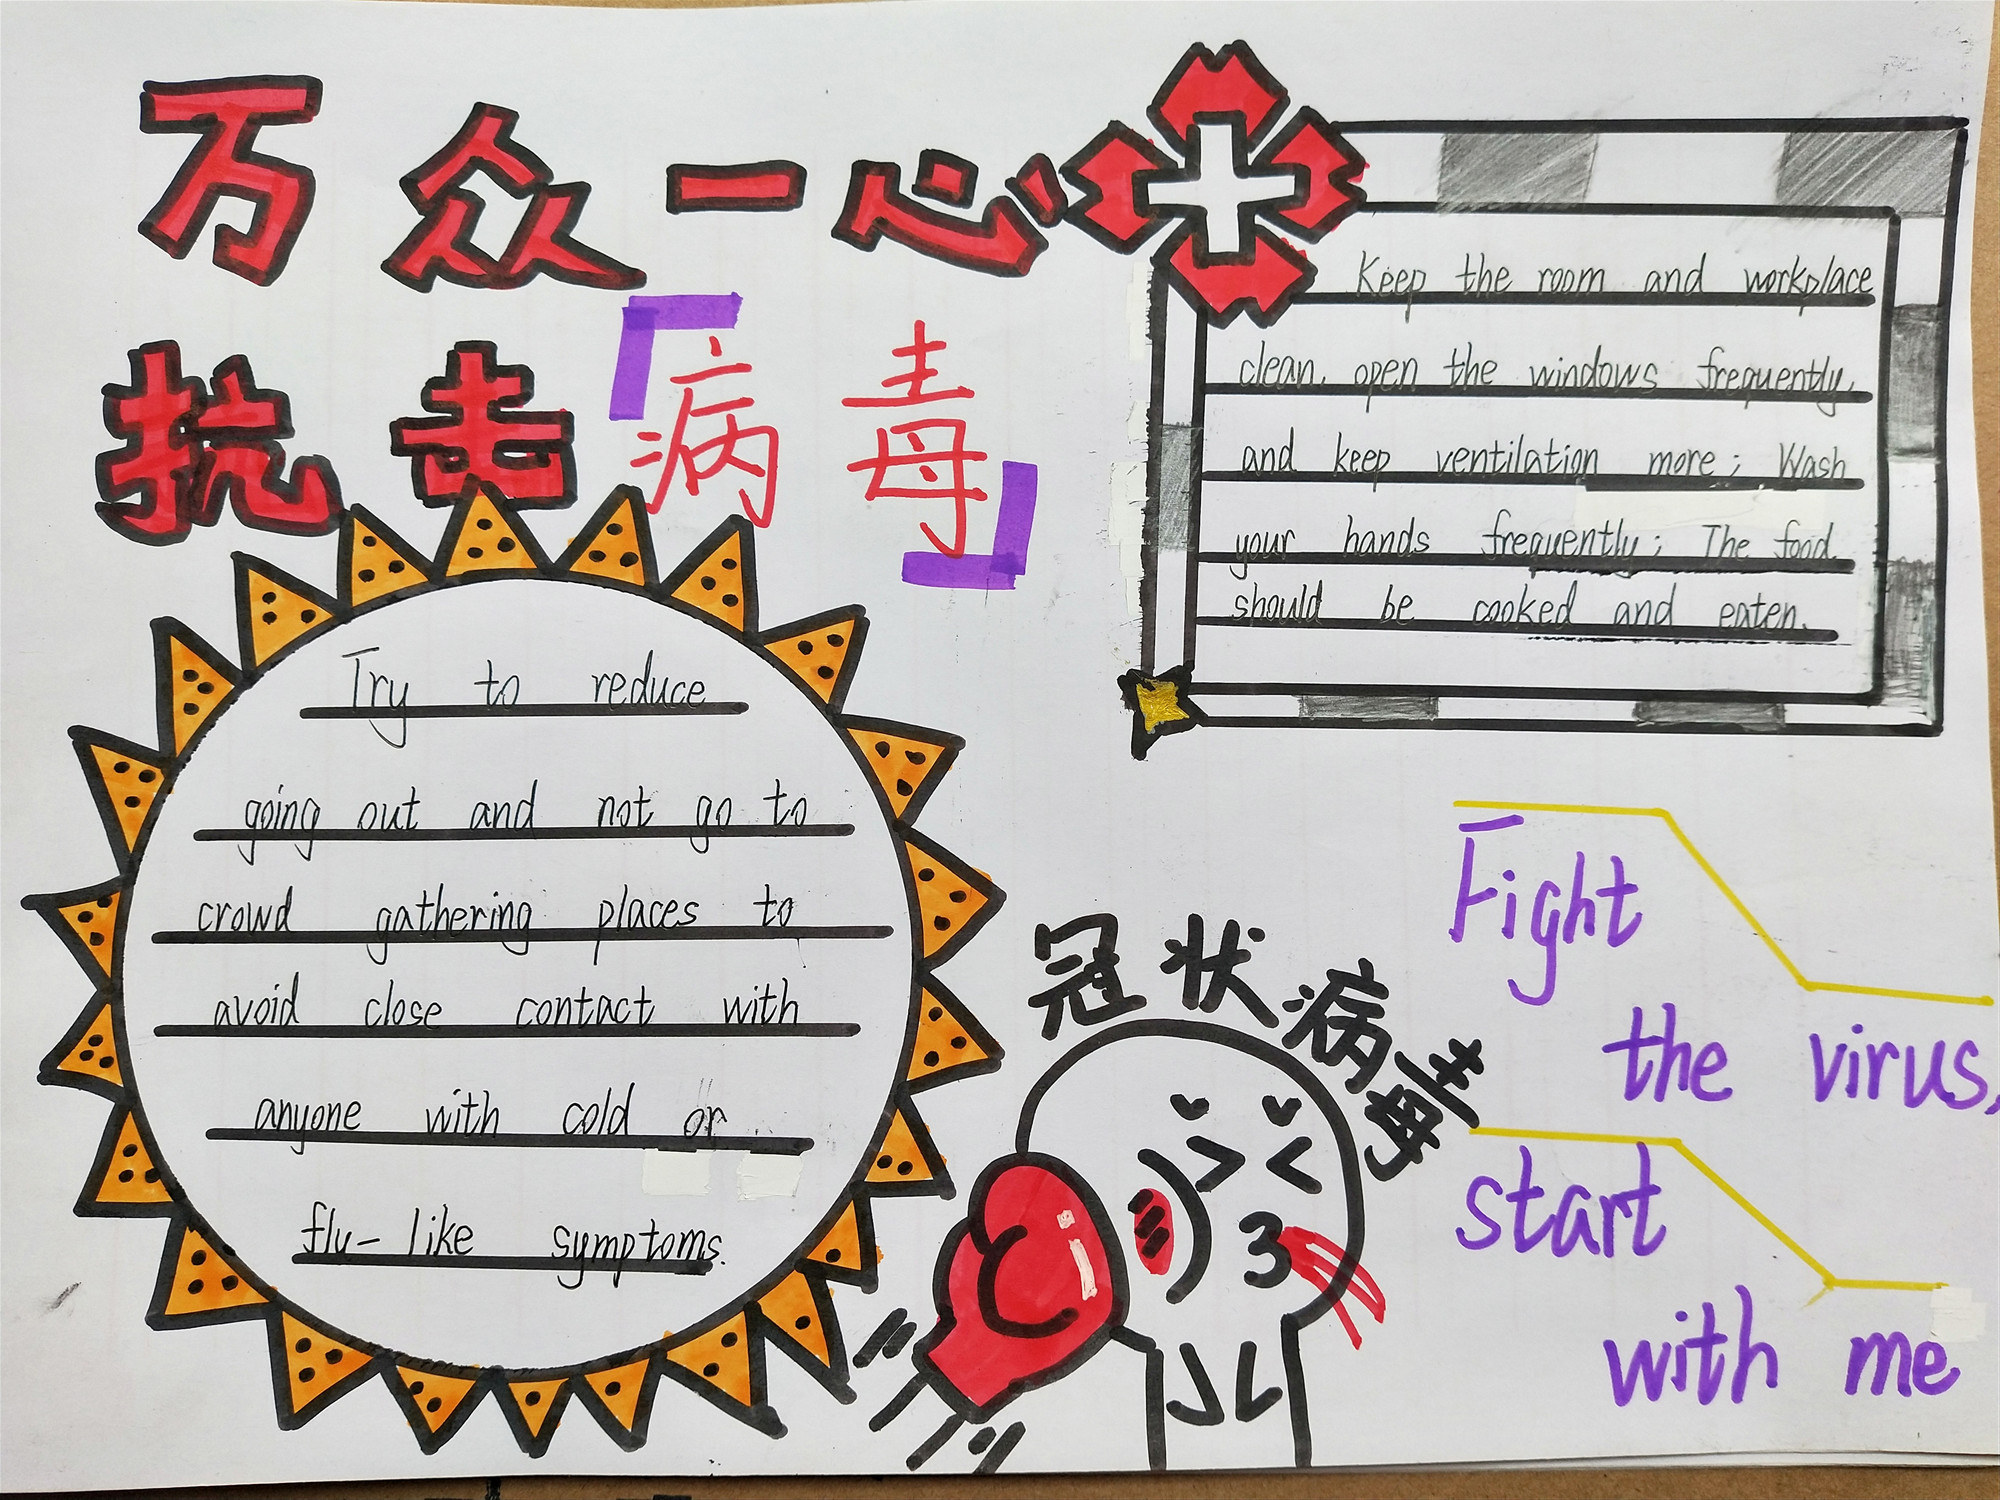 万众一心
抗击「病毒」
Keep the room and workplace
clean, open the windows frequently,
and keep ventilation more; Wash
your hands frequently; The food
should be cooked and eaten.
Try to reduce
going out and not go to
crowd gathering places to
avoid close contact with
anyone with cold or
flu-like symptoms.
冠状病毒
Fight
the virus,
start
with me